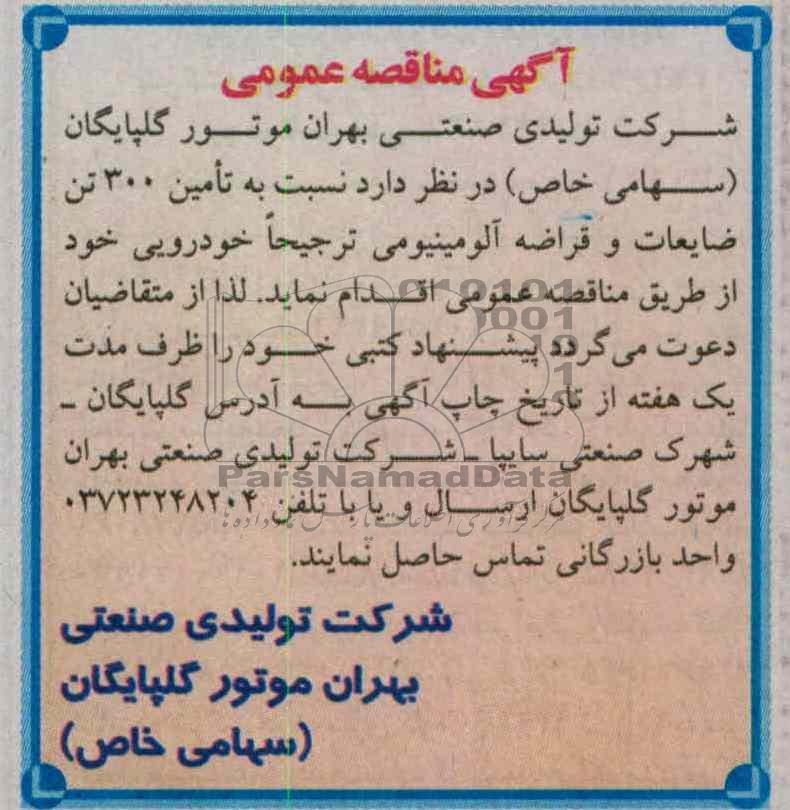 آگهی مناقصه عمومی
شرکت تولیدی صنعتی بهران موتور گلپایگان
(سهامی خاص) در نظر دارد نسبت به تأمین ۳۰۰ تن
ضایعات و قراضه آلومینیومی ترجیحاً خودرویی خود
از طریق مناقصه عمومی اقدام نماید. لذا از متقاضیان
دعوت می‌گردد پیشنهاد کتبی خود را ظرف مدت
یک هفته از تاریخ چاپ آگهی به آدرس گلپایگان ـ
شهرک صنعتی سایپا ـ شرکت تولیدی صنعتی بهران
ParsNamadData
موتور گلپایگان ارسال و یا با تلفن ۰۳۷۲۳۲۴۸۲۰۴
واحد بازرگانی تماس حاصل نمایند.
شرکت تولیدی صنعتی
بهران موتور گلپایگان
(سهامی خاص)